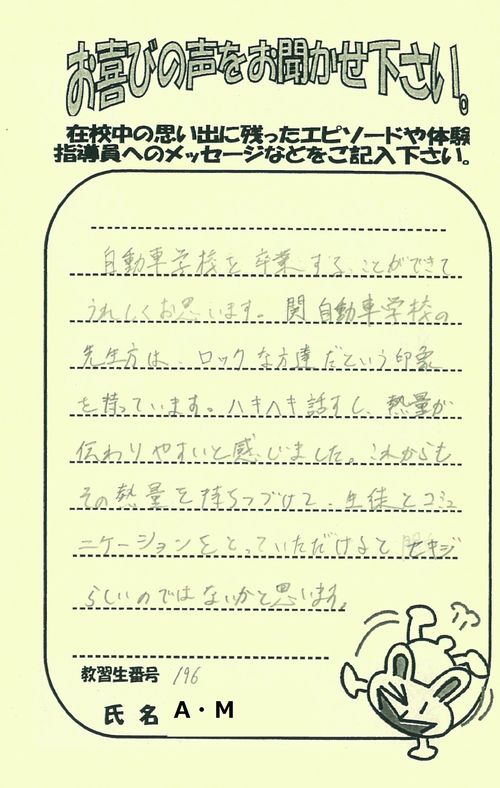 お喜びの声をお聞かせ下さい。
在校中の思い出に残ったエピソードや体験
指導員へのメッセージなどをご記入下さい。
自動車学校を卒業することができて
うれしくお思います。関自動車学校の
先生方は、ロックな方達だという印象
を持っています。ハキハキ話すし、熱量が
伝わりやすいと感じました。これからも
その熱量を持ちつづけて、生徒とコミュ
ニケーションをとっていただけると セキジ
らしいのではないかと思います。
教習生番号 196
氏名 A・M